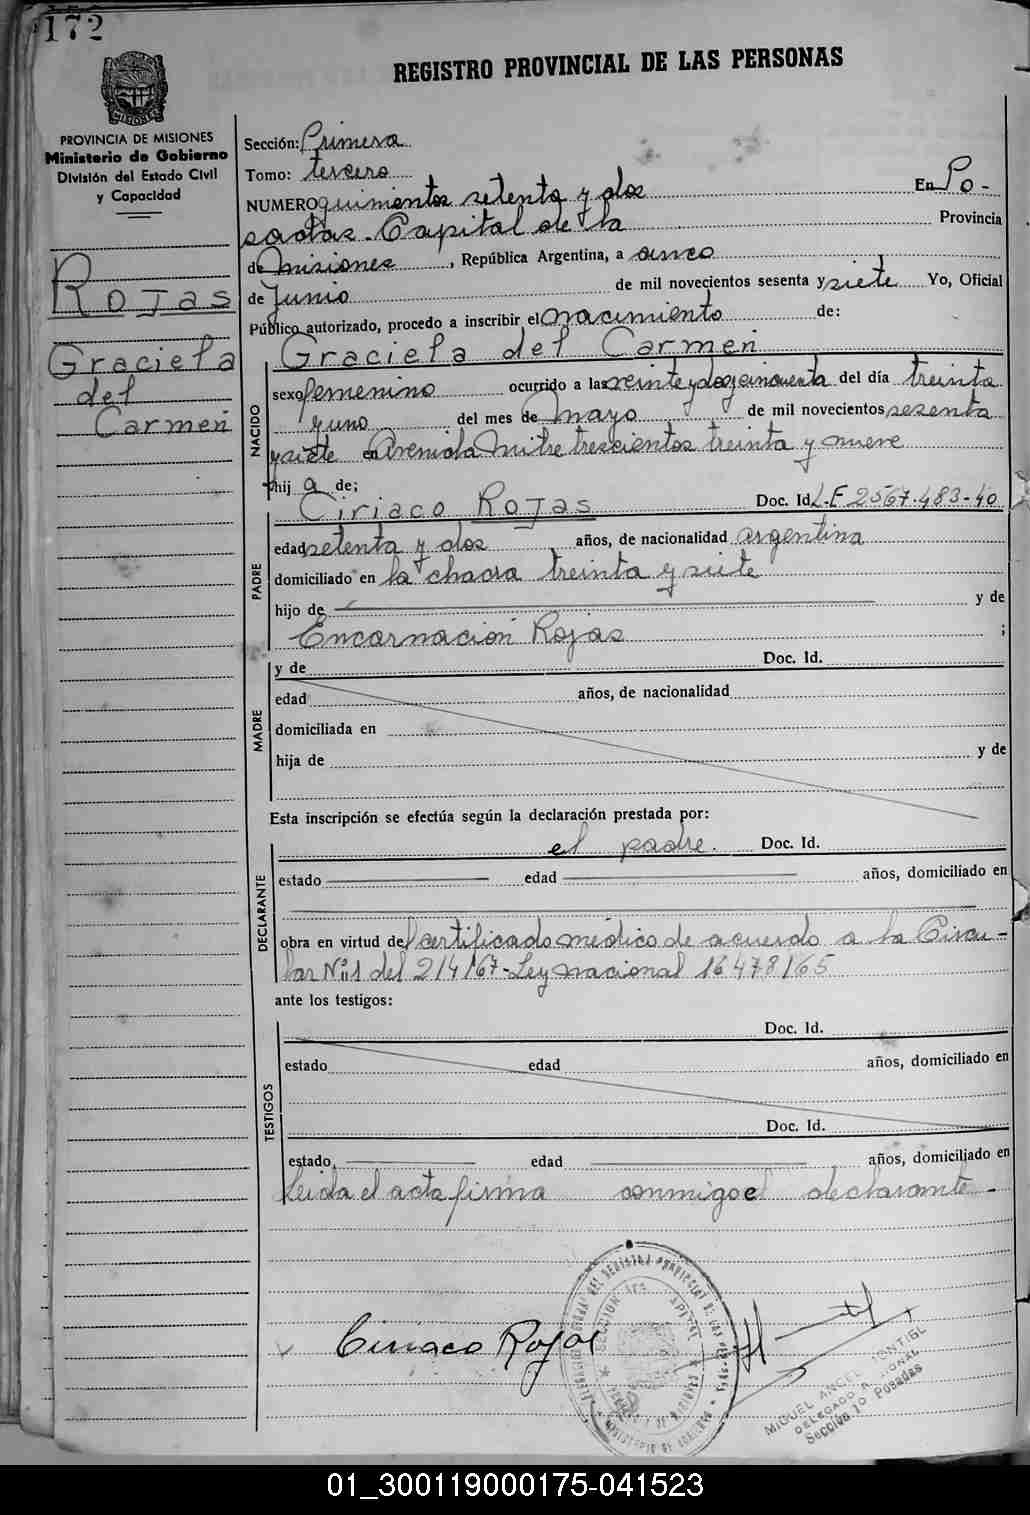 172
REGISTRO PROVINCIAL DE LAS PERSONAS
PROVINCIA DE MISIONES
Ministerio de Gobierno
División del Estado Civil
y Capacidad
ROJAS
Graciela
del
Carmen
Sección: Primera
Tomo: tercero
NUMERO quinientos setenta y dos En Po-
sadas. Capital de la Provincia
de Misiones, República Argentina, a cinco
de Junio de mil novecientos sesenta y siete Yo, Oficial
Público autorizado, procedo a inscribir el nacimiento de:
Graciela del Carmen
NACIDO
sexo femenino ocurrido a las veinte y dos y cincuenta del día treinta
y uno del mes de Mayo de mil novecientos sesenta
y siete en Avenida Mitre trescientos treinta y nueve
hij a de;
PADRE
Ciriaco ROJAS Doc. Id. L.E 2567.483-40
edad setenta y dos años, de nacionalidad argentina
domiciliado en la chacra treinta y siete
hijo de y de
Encarnación Rojas ;
MADRE
y de Doc. Id.
edad años, de nacionalidad
domiciliada en
hija de y de
Esta inscripción se efectúa según la declaración prestada por:
DECLARANTE
el padre. Doc. Id.
estado edad años, domiciliado en
obra en virtud del certificado médico de acuerdo a la Circu-
lar Nº 1 del 2/4/67-Ley nacional 16478/65
ante los testigos:
TESTIGOS
Doc. Id.
estado edad años, domiciliado en
Doc. Id.
estado, edad años, domiciliado en
Leida el acta firma conmigo el declarante-
Ciriaco Rojas
MIGUEL ANGEL
DELEGADO
Sección 1º Posadas
01_300119000175-041523